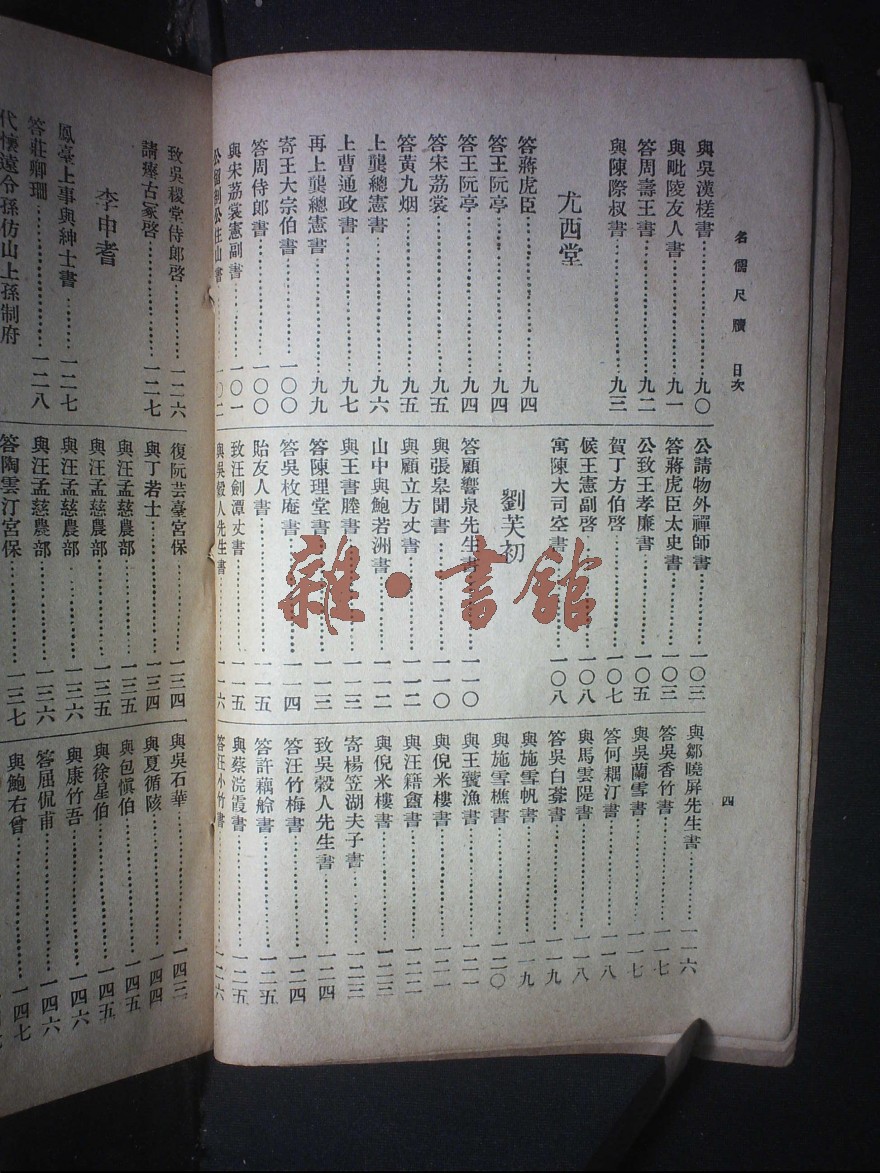 名儒尺牘 目次
四
與吳漢槎書……九〇
與毗陵友人書……九一
答周壽王書……九二
與陳際叔書……九三
尤西堂
答蔣虎臣……九四
答王阮亭……九四
答王阮亭……九四
答宋荔裳……九五
答黃九烟……九五
上龔總憲書……九六
上曹通政書……九七
再上龔總憲書……九九
寄王大宗伯書……一〇〇
答周侍郎書……一〇〇
與宋荔裳憲副書……一〇一
公請物外禪師書……一〇三
答蔣虎臣太史書……一〇三
公致王孝廉書……一〇五
賀丁方伯啓……一〇七
候王憲副啓……一〇八
寓陳大司空書……一〇八
劉芙初
答顧響泉先生書……一一〇
與張皋聞書……一一〇
與顧立方丈書……一一二
山中與鮑若洲書……一一二
與王書塍書……一一三
答陳理堂書……一一三
答吳枚庵書……一一四
貽友人書……一一五
致汪劍潭丈書……一一五
與吳穀人先生書……一一六
與鄒曉屏先生書……一一六
答吳香竹書……一一七
與吳蘭雪書……一一七
答何耦汀書……一一八
與馬雲隄書……一一八
答吳白蕐書……一一九
與施雪帆書……一一九
與施雪樵書……一二〇
與王鷰漁書……一二一
與倪米樓書……一二一
與汪籍盦書……一二二
與倪米樓書……一二三
寄楊笠湖夫子書……一二三
致吳穀人先生書……一二四
答汪竹梅書……一二四
答許藕舲書……一二五
與蔡浣霞書……一二五
答汪小竹書……一二六
致吳稷堂侍郎啓……一二六
請瘞古冢啓……一二七
李申耆
鳳臺上事與紳士書……一二七
答莊卿珊……一二八
代懷遠令孫仿山上孫制府
復阮芸臺宮保……一三四
與丁若士……一三四
與汪孟慈農部……一三五
與汪孟慈農部……一三五
與汪孟慈農部……一三六
與汪孟慈農部……一三六
答陶雲汀宮保……一三七
與吳石華……一四三
與夏循陔……一四四
與包愼伯……一四五
與徐星伯……一四五
與康竹吾……一四六
答屈侃甫……一四六
與鮑右曾……一四七
雜·書館